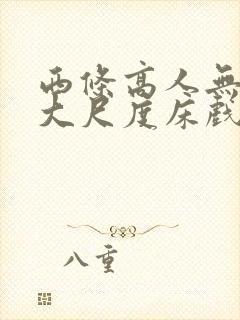 西條高人無
大尺度床戲
八重